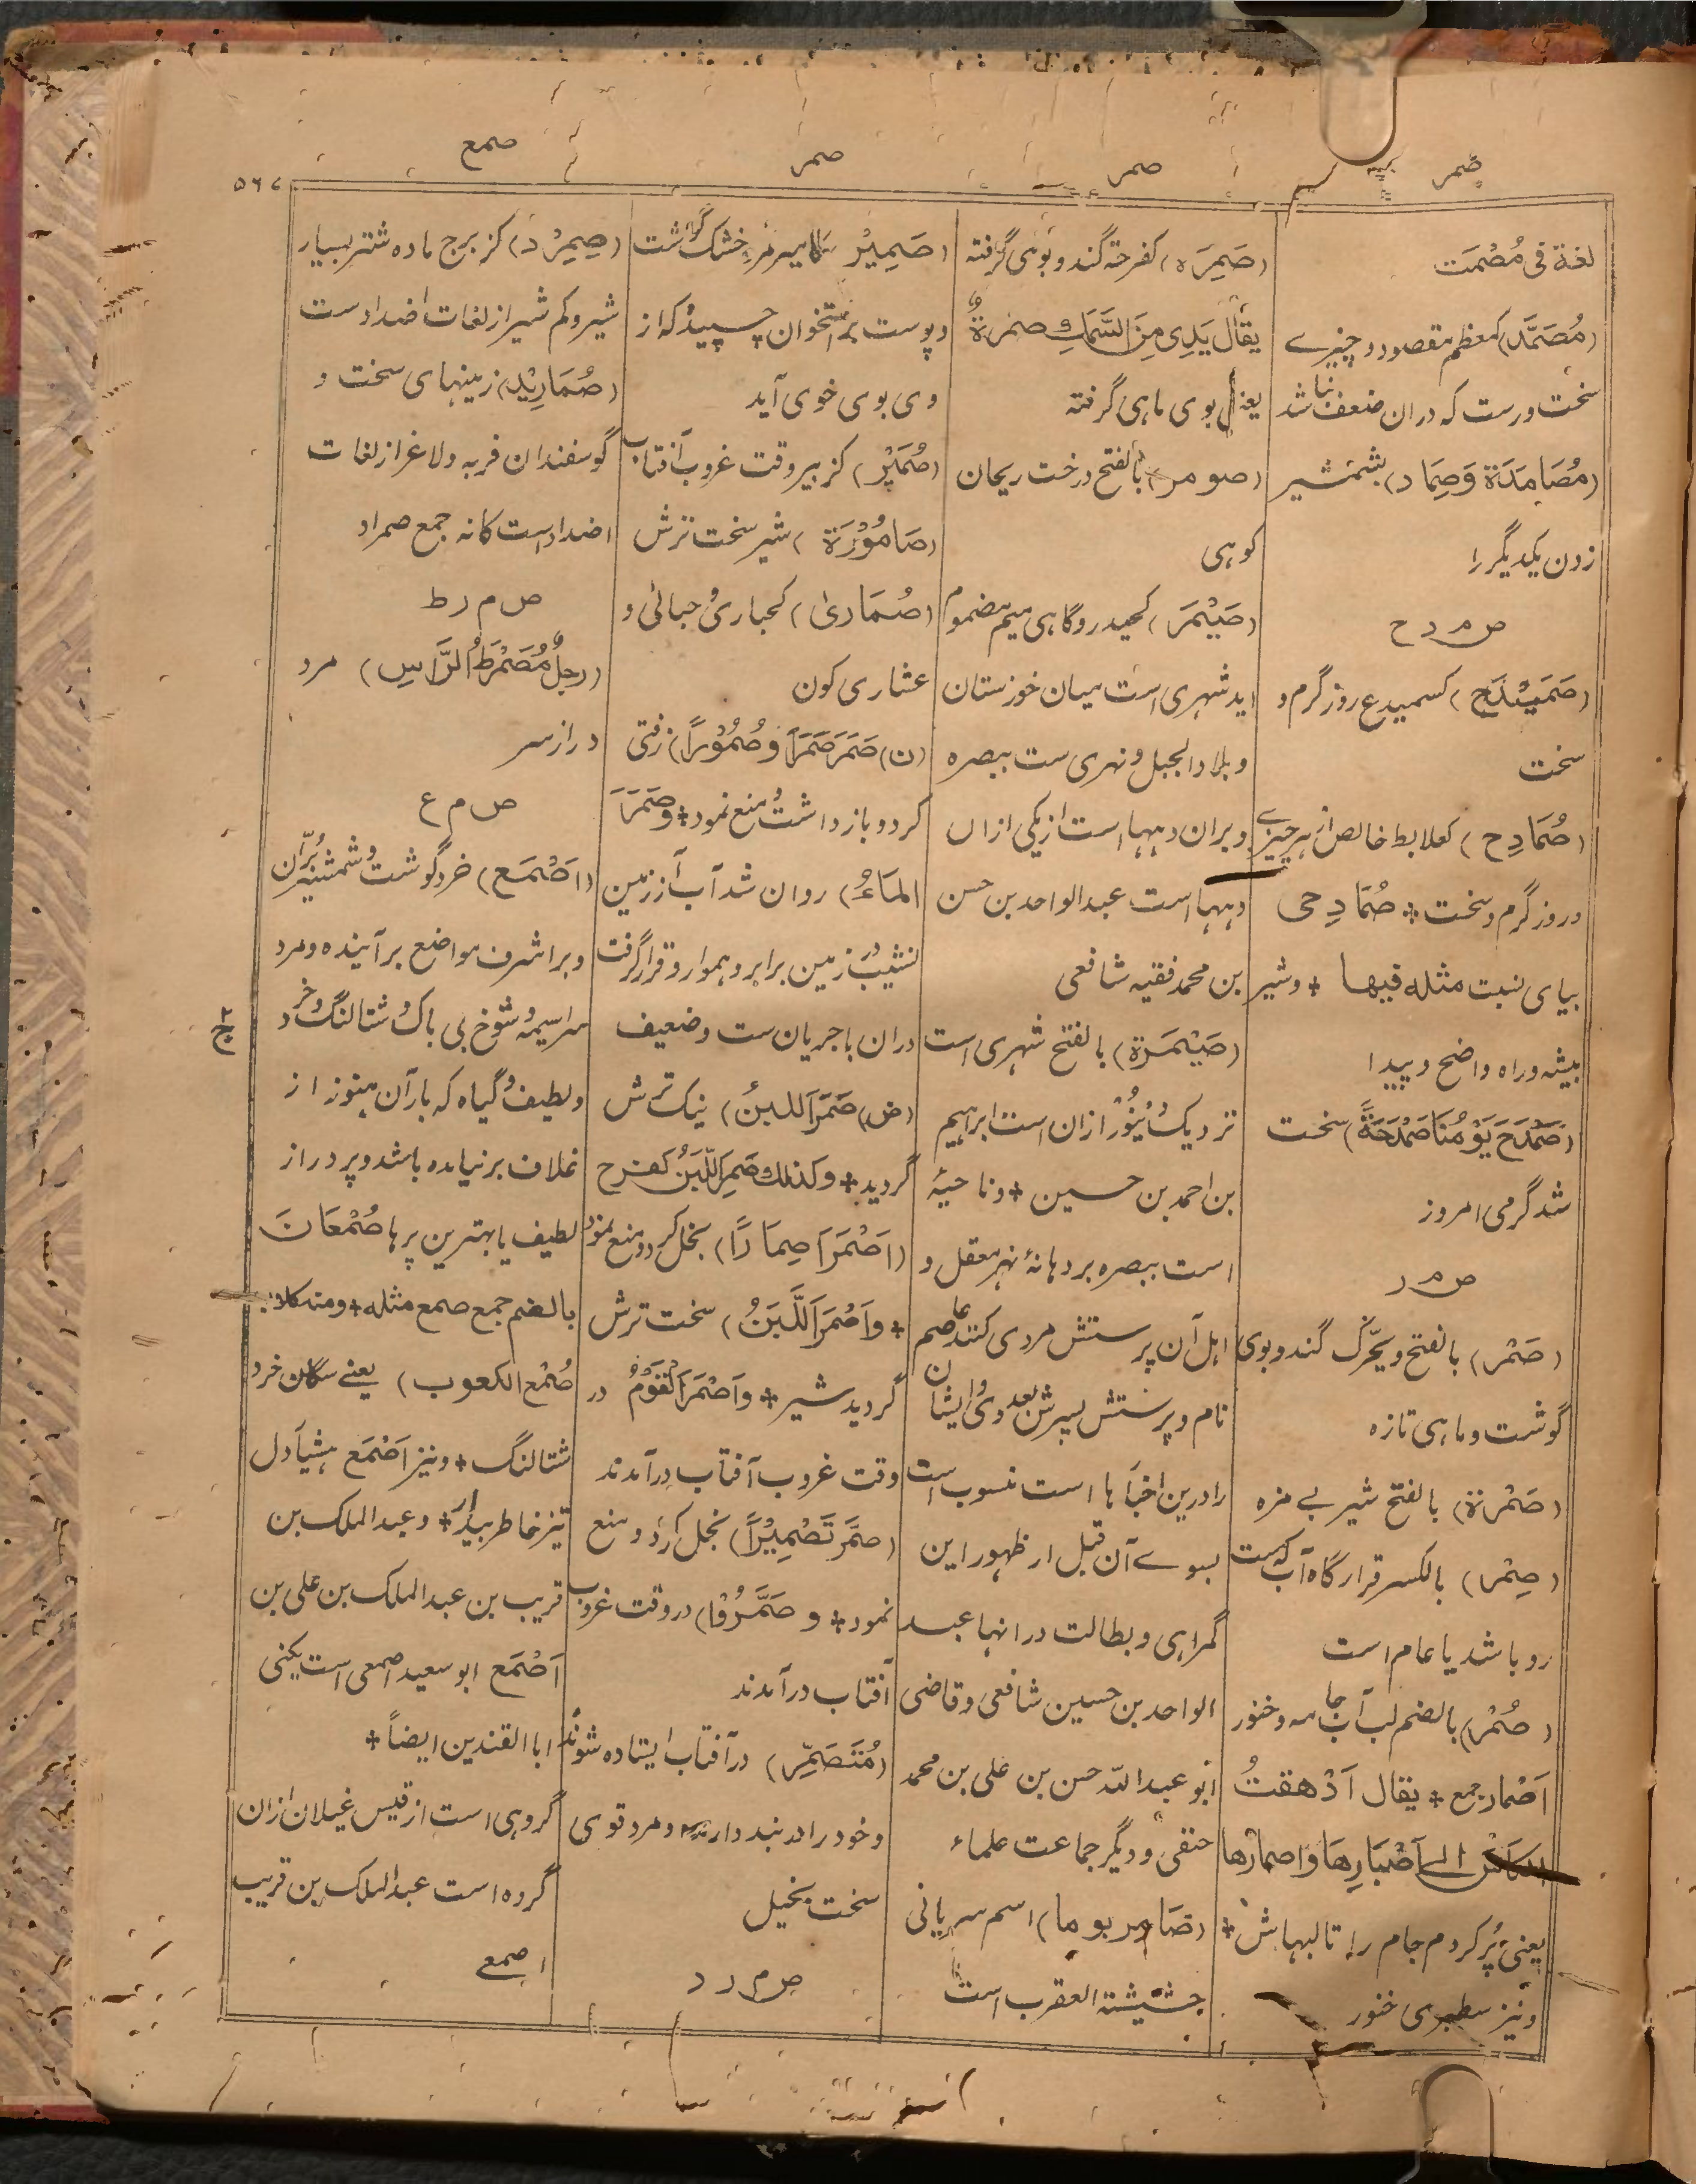 صمر
صمر
صمر
صمع
۵۶۷
لغة فی مُصْمَت
(مُصَمَّد) کمعظم مقصود و چیزے
سخت ورست که دران ضعف نباشد
(مُصَامَدَة وَصِمَاد) بشمشیر
زدن یکدیگر را
ص م د ح
(صَمَیْدَح) کسمیدع روز گرم و
سخت
(صُمَادِح) کعلابط خالص از هر چیزے
و روز گرم و سخت + صُمَادِحی
بیای نسبت مثله فیهما + و شیر
بیشه و راه واضح و پیدا
(صَمْدَحَ یَوْمُنَا صَمْدَحَةً) سخت
شد گرمی امروز
ص م ر
(صَمْر) بالفتح و یحرّک گند و بوی
گوشت و ماهی تازه
(صَمْرَة) بالفتح شیر بے مزه
(صِمْر) بالکسر قرارگاه آب که ست
رو باشد یا عام است
(صُمْر) بالضم لب آب جامه و خنور
اَصْمار جمع + یقال اَدْهقتُ
الکأس الے اَصْبَارِهَا وَاصمارها
یعنی پُر کردم جام را تا لبهاش +
و نیز سطبری خنور
(صَمِرَه) کفرحة گند و بوهی گرفته
یقال یَدِی مِنَ السَّمَكِ صمرةٌ
یعنی بوی ماهی گرفته
(صومر) بالفتح درخت ریحان
کوهی
(صَیْمَر) کحیدر و گاهی میم مضموم
اید شهری است میان خوزستان
و بلاد الجبل و نهری ست ببصره
و بران دهها است از یکی ازان
دهها است عبد الواحد بن حسن
بن محمد فقیه شافعی
(صَیْمَرَة) بالفتح شهری است
نزدیک دینور ازان است ابراهیم
بن احمد بن حسین + و ناحیۀ
است ببصره بر دهانۀ نهر معقل و
اهل آن پرستش مردی کنند عاصم
نام و پرستش پسرش بعد وی و ایشان
را درین اخبار ها است منسوب است
بسوے آن قبل از ظهور این
گمراهی و بطالت در انها عبد
الواحد بن حسین شافعی و قاضی
ابو عبد الله حسن بن علی بن محمد
حنفی و دیگر جماعت علماء
(صَامر بوما) اسم سریانی
حشیشة العقرب است
(صَمِیْر) کامیر مرد خشک گوشت
و پوست بر استخوان چسپیده که از
وی بوی خوی آید
(صُمَیْر) کزبیر وقت غروب آفتاب
(صَامُوْرَة) شیر سخت ترش
(صُمَاریٰ) کحباریٰ و حبالیٰ و
عشاری کون
(ن) صَمَرَ صَمَرَاً وَ صُمُوْراً) زفتی
کرد و باز داشت و منع نمود + وَ صَمَرَ
المَاءُ) روان شد آب از زمین
نشیب در زمین برابر و هموار و قرار گرفت
دران با جریان ست و ضعیف
(ض) صَمَرَ اللبنُ) نیک ترش
گردید + و کذلك صَمِرَ اللَّبَنُ کفرح
(اَصْمَرَ اِصِمَارًا) بخل کرد و منع نمود
+ وَاَصْمَرَ اللَّبَنُ) سخت ترش
گردید شیر + وَاَصْمَرَ القَوْمُ در
وقت غروب آفتاب درآمدند
(صَمَّرَ تَصْمِیْراً) بخل کرد و منع
نمود + و صَمَّرُوْا) در وقت غروب
آفتاب درآمدند
(مُتَصَمِّر) در آفتاب ایستاده شونده
و خود را در بند دارنده و مرد قوی
سخت بخیل
ص م ر د
(صِمرِد) کزبرج ماده شتر بسیار
شیر و کم شیر از لغات اضداد ست
(صُمَارِیْد) زمینهای سخت و
گوسفندان فربه و لاغر از لغات
اضداد است کانه جمع صمراد
ص م ر ط
(رجلٌ مُصَمْرَطُ الرَّاسِ) مرد
دراز سر
ص م ع
(اَصْمَع) خرد گوشت و شمشیر برّان
و برا شرف مواضع برآینده و مرد
سراسیمه و شوخ بی باک و شتالنگ خرد
و لطیف و گیاه که بار آن هنوز از
غلاف برنیامده باشد و پر دراز
لطیف یا بهترین پرها صُمْعَان
بالضم جمع صمع مثله + و منه کلاب
صُمْع الکعوب) یعنے سگان خرد
شتالنگ + و نیز اَصْمَع هشیار دل
تیز خاطر بیدار + و عبد الملک بن
قریب بن عبد الملک بن علی بن
اَصْمَع ابو سعید اصمعی است یکنی
ابا القندین ایضاً +
گروهی است از قیس غیلان ازان
گروه است عبد الملک بن قریب
اصمعے